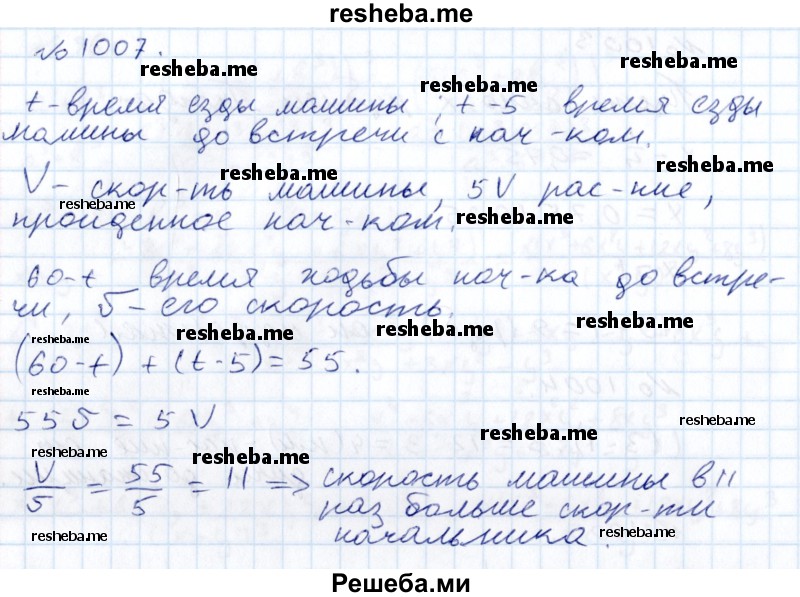 resheba.me
№ 1007.
resheba.me
resheba.me
t - время езды машины ; t - 5 время езды
resheba.me
машины до встречи с нач-ком.
resheba.me
resheba.me
V - скор-ть машины, 5V рас-ние,
resheba.me
resheba.me
пройденное нач-ком.
60-t время ходьбы нач-ка до встре-
чи, 5 - его скорость.
resheba.me
resheba.me
resheba.me
resheba.me
(60-t) + (t-5) = 55.
resheba.me
55 5 = 5 V
resheba.me
resheba.me
resheba.me
resheba.me
V/5 = 55/5 = 11 => скорость машины в 11
раз больше скор-ти
начальника.
resheba.me
resheba.me
resheba.me
Решеба.ми